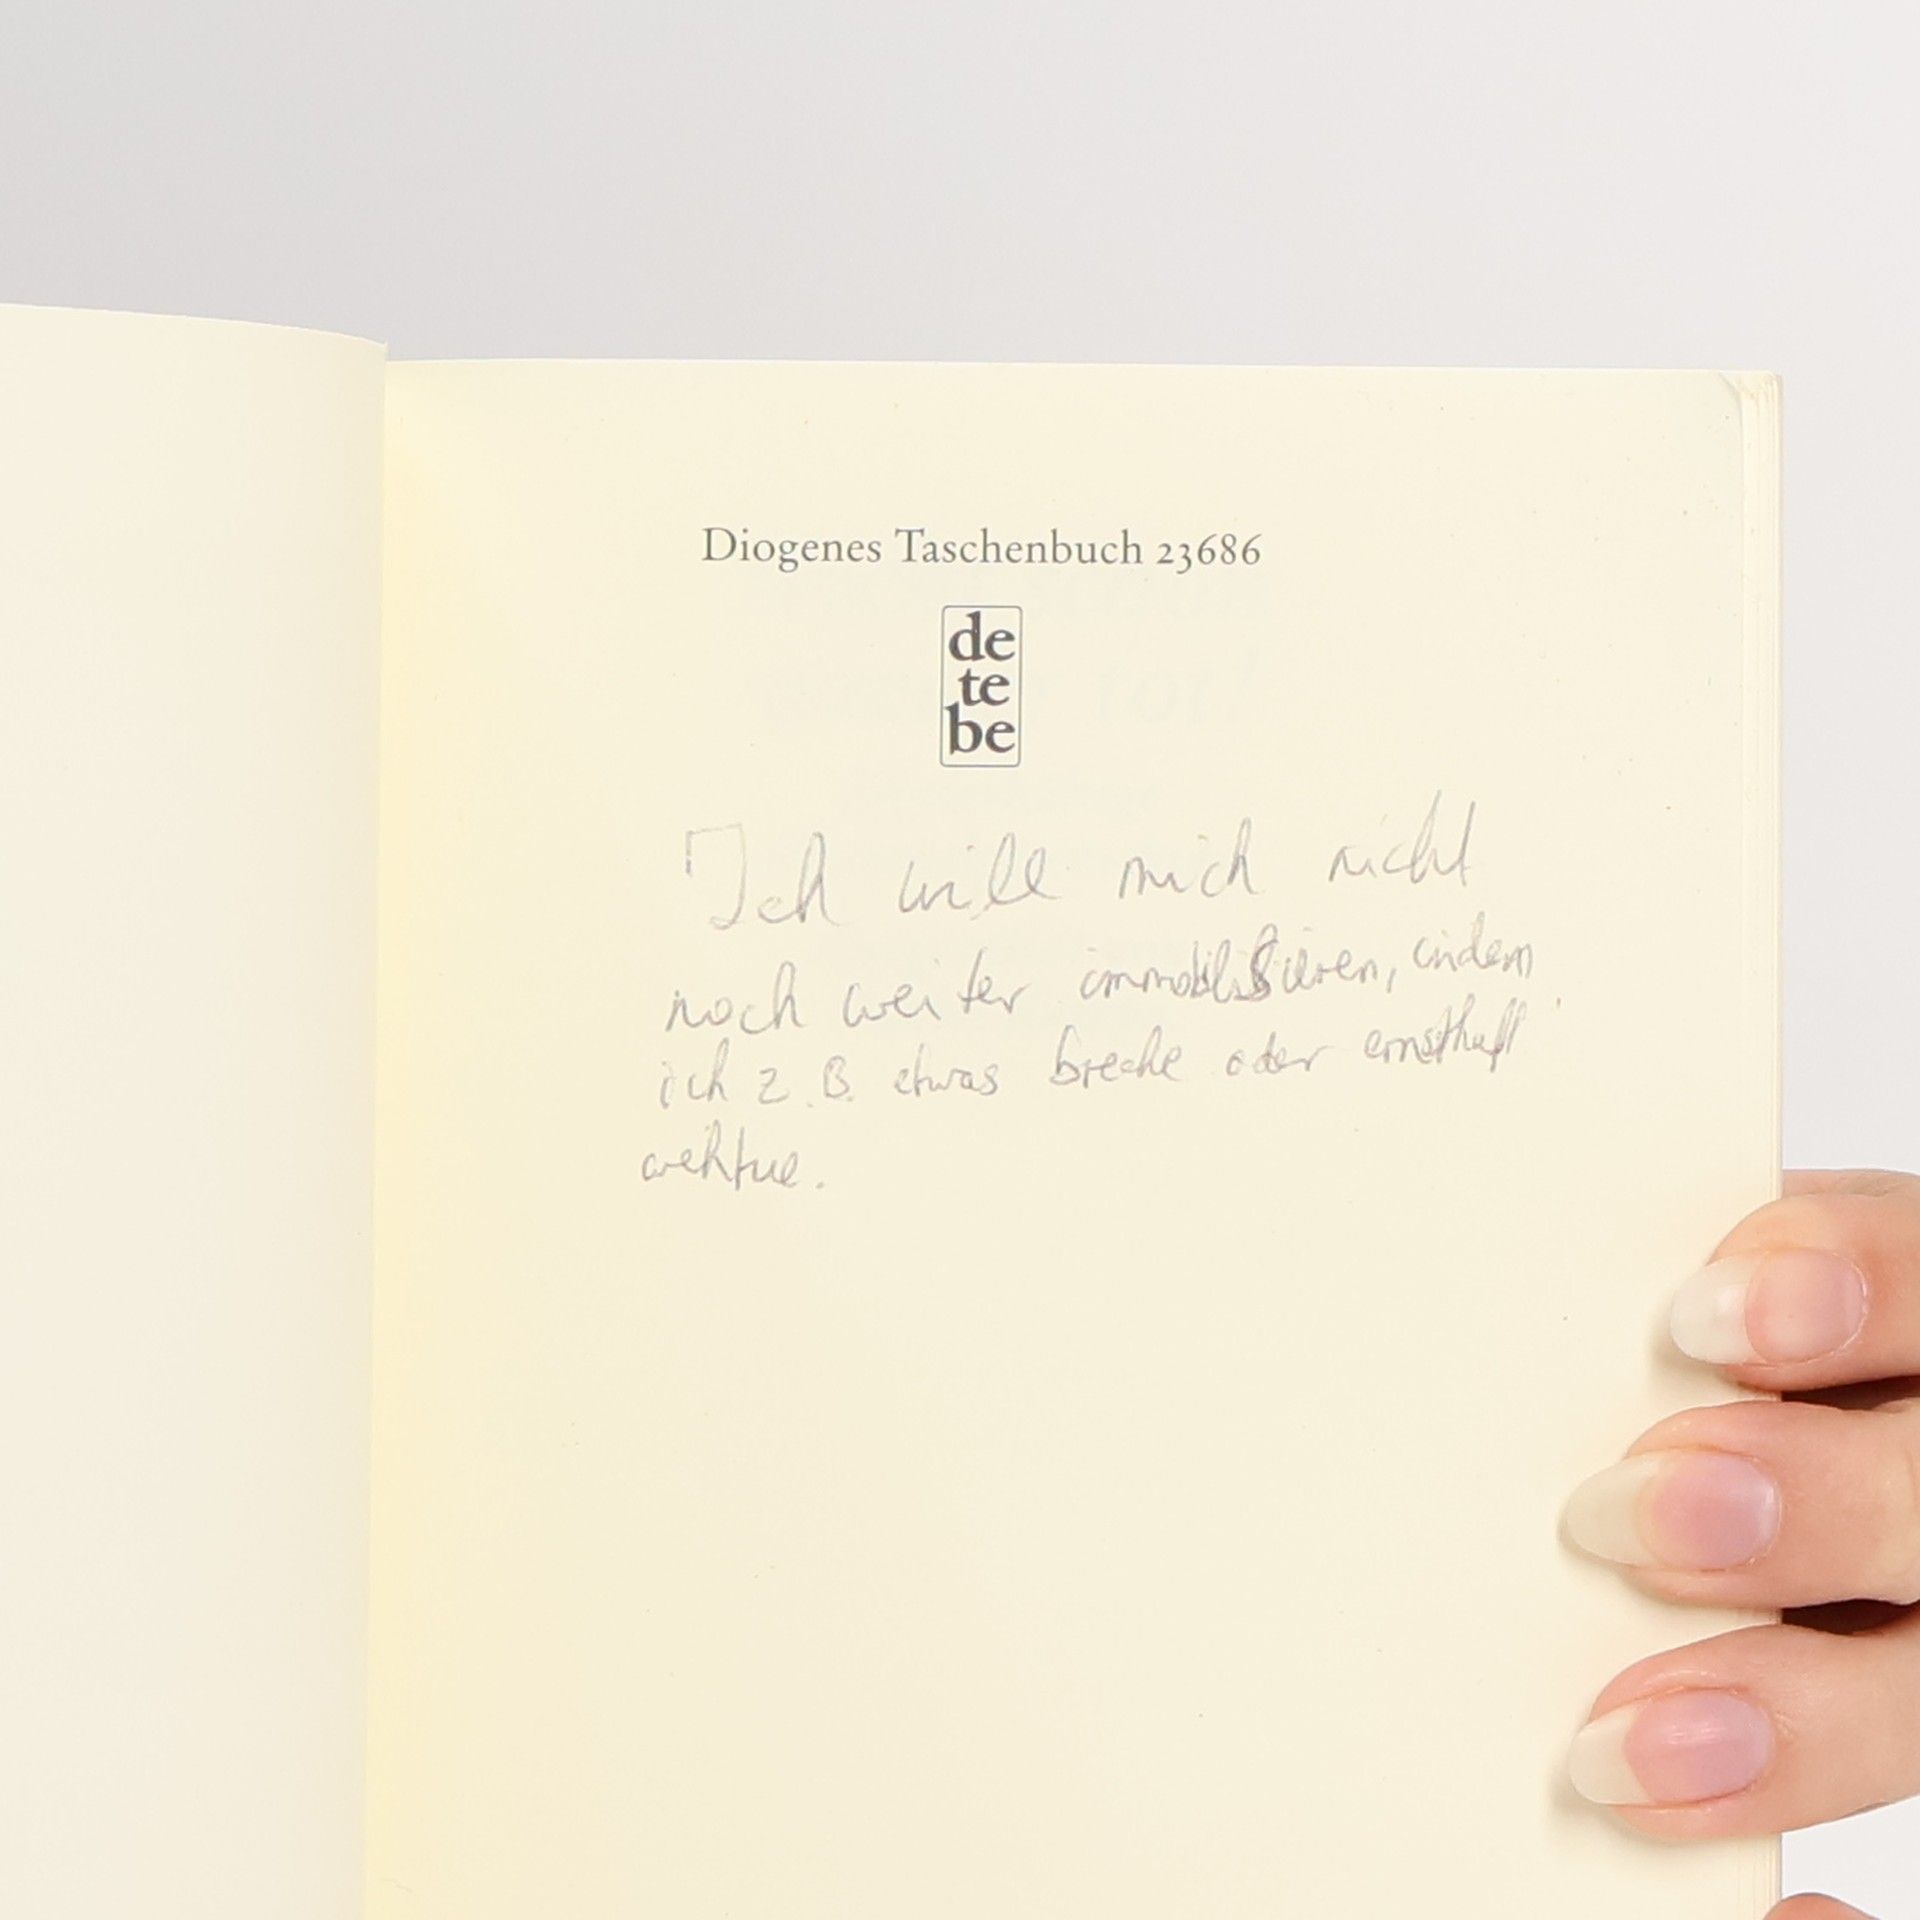 Diogenes Taschenbuch 23686
de
te
be
Ich will mich nicht
noch weiter immobilisieren, indem
ich z.B. etwas breche oder ernsthaft
wehtue.